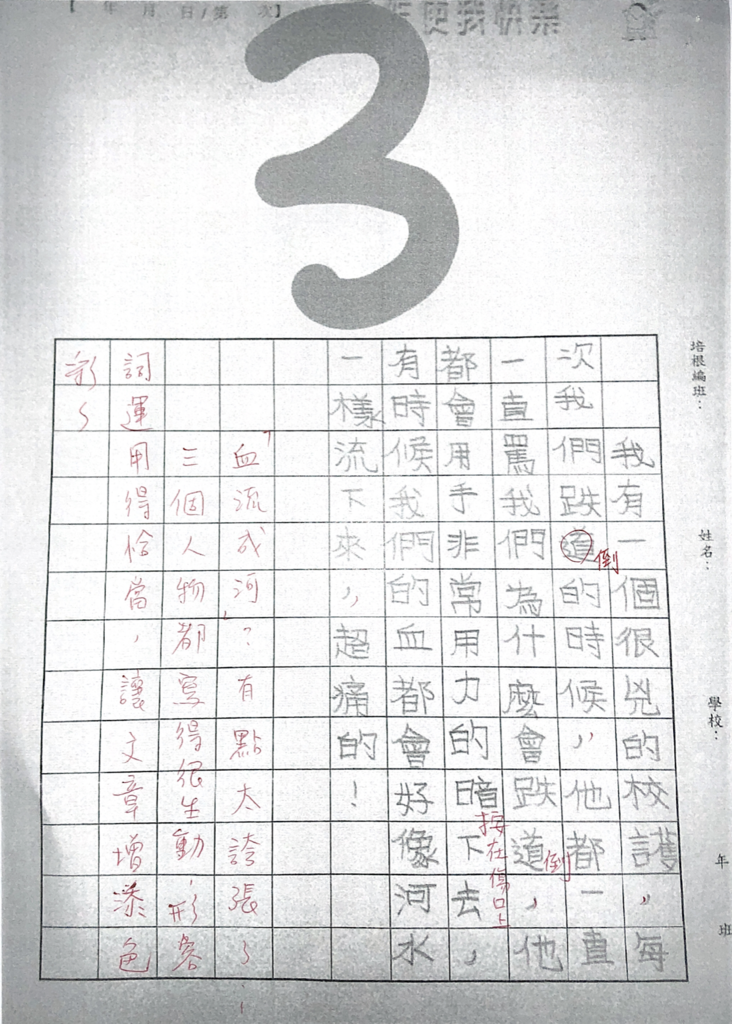 【　年　月　日/第　次】
使我快樂
3
培根編班：
姓名：
學校：
年　班
我有一個很兇的校護，每
次我們跌道的時候，他都一直
倒
一直罵我們為什麼會跌道，他
倒
都會用手非常用力的暗下去，
按在傷口上
有時候我們的血都會好像河水
一樣流下來，超痛的！
「血流成河」？有點太誇張～
三個人物都寫得很生動，形容
詞運用得恰當，讓文章增添色
彩～